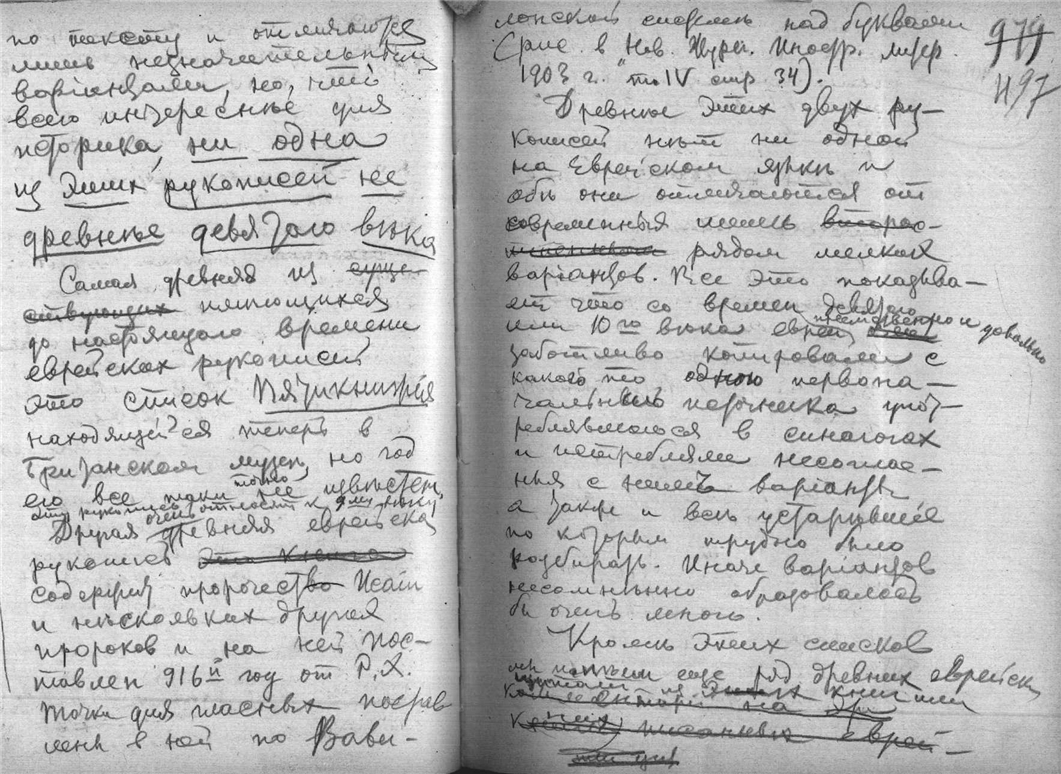 по тексту и отличаются
лишь незначительными
варiантами, но, что
всего интереснѣе для
историка, ни одна
из этих рукописей не
древнѣе девятаго вѣка
Самая древняя из суще-
ствующих имѣющихся
до настоящаго времени
еврейских рукописей
это список Пятикнижiя
находящiйся теперь в
Британском музеѣ, но год
его все таки точно не извѣстен,
эту рукопись относят к 9му вѣку
Другая древняя еврейская
рукопись
содержит пророчество Исаiи
и нѣскольких других
пророков и на ней пос-
тавлен 916й год от Р.Х.
Точки для гласных постав-
лены в ней по Вави-
лонской системѣ над буквами
в Нов. Журн. Иностр. литер.
1903 г. то IV стр 34).
979
497
Древнѣе этих двух ру-
кописей нѣт ни одной
на Еврейском языкѣ и
обѣ они отличаются от
современных лишь
рядом мелких
варiантов. Все это показыва-
ет что со времен девятаго
или 10го вѣка евреи и довольно
заботливо копировали с
какого то одного перво­на-
чальнаго источника упот-
реблявшагося в синагогах
и истребляли несоглас-
ные с ним варiанты
а также и весь устарѣвшiе
по которым трудно было
разбирать. Иначе варiантов
несомнѣнно образовалось
бы очень много.
Кромѣ этих списков
еще ряд древних еврейских
книг или